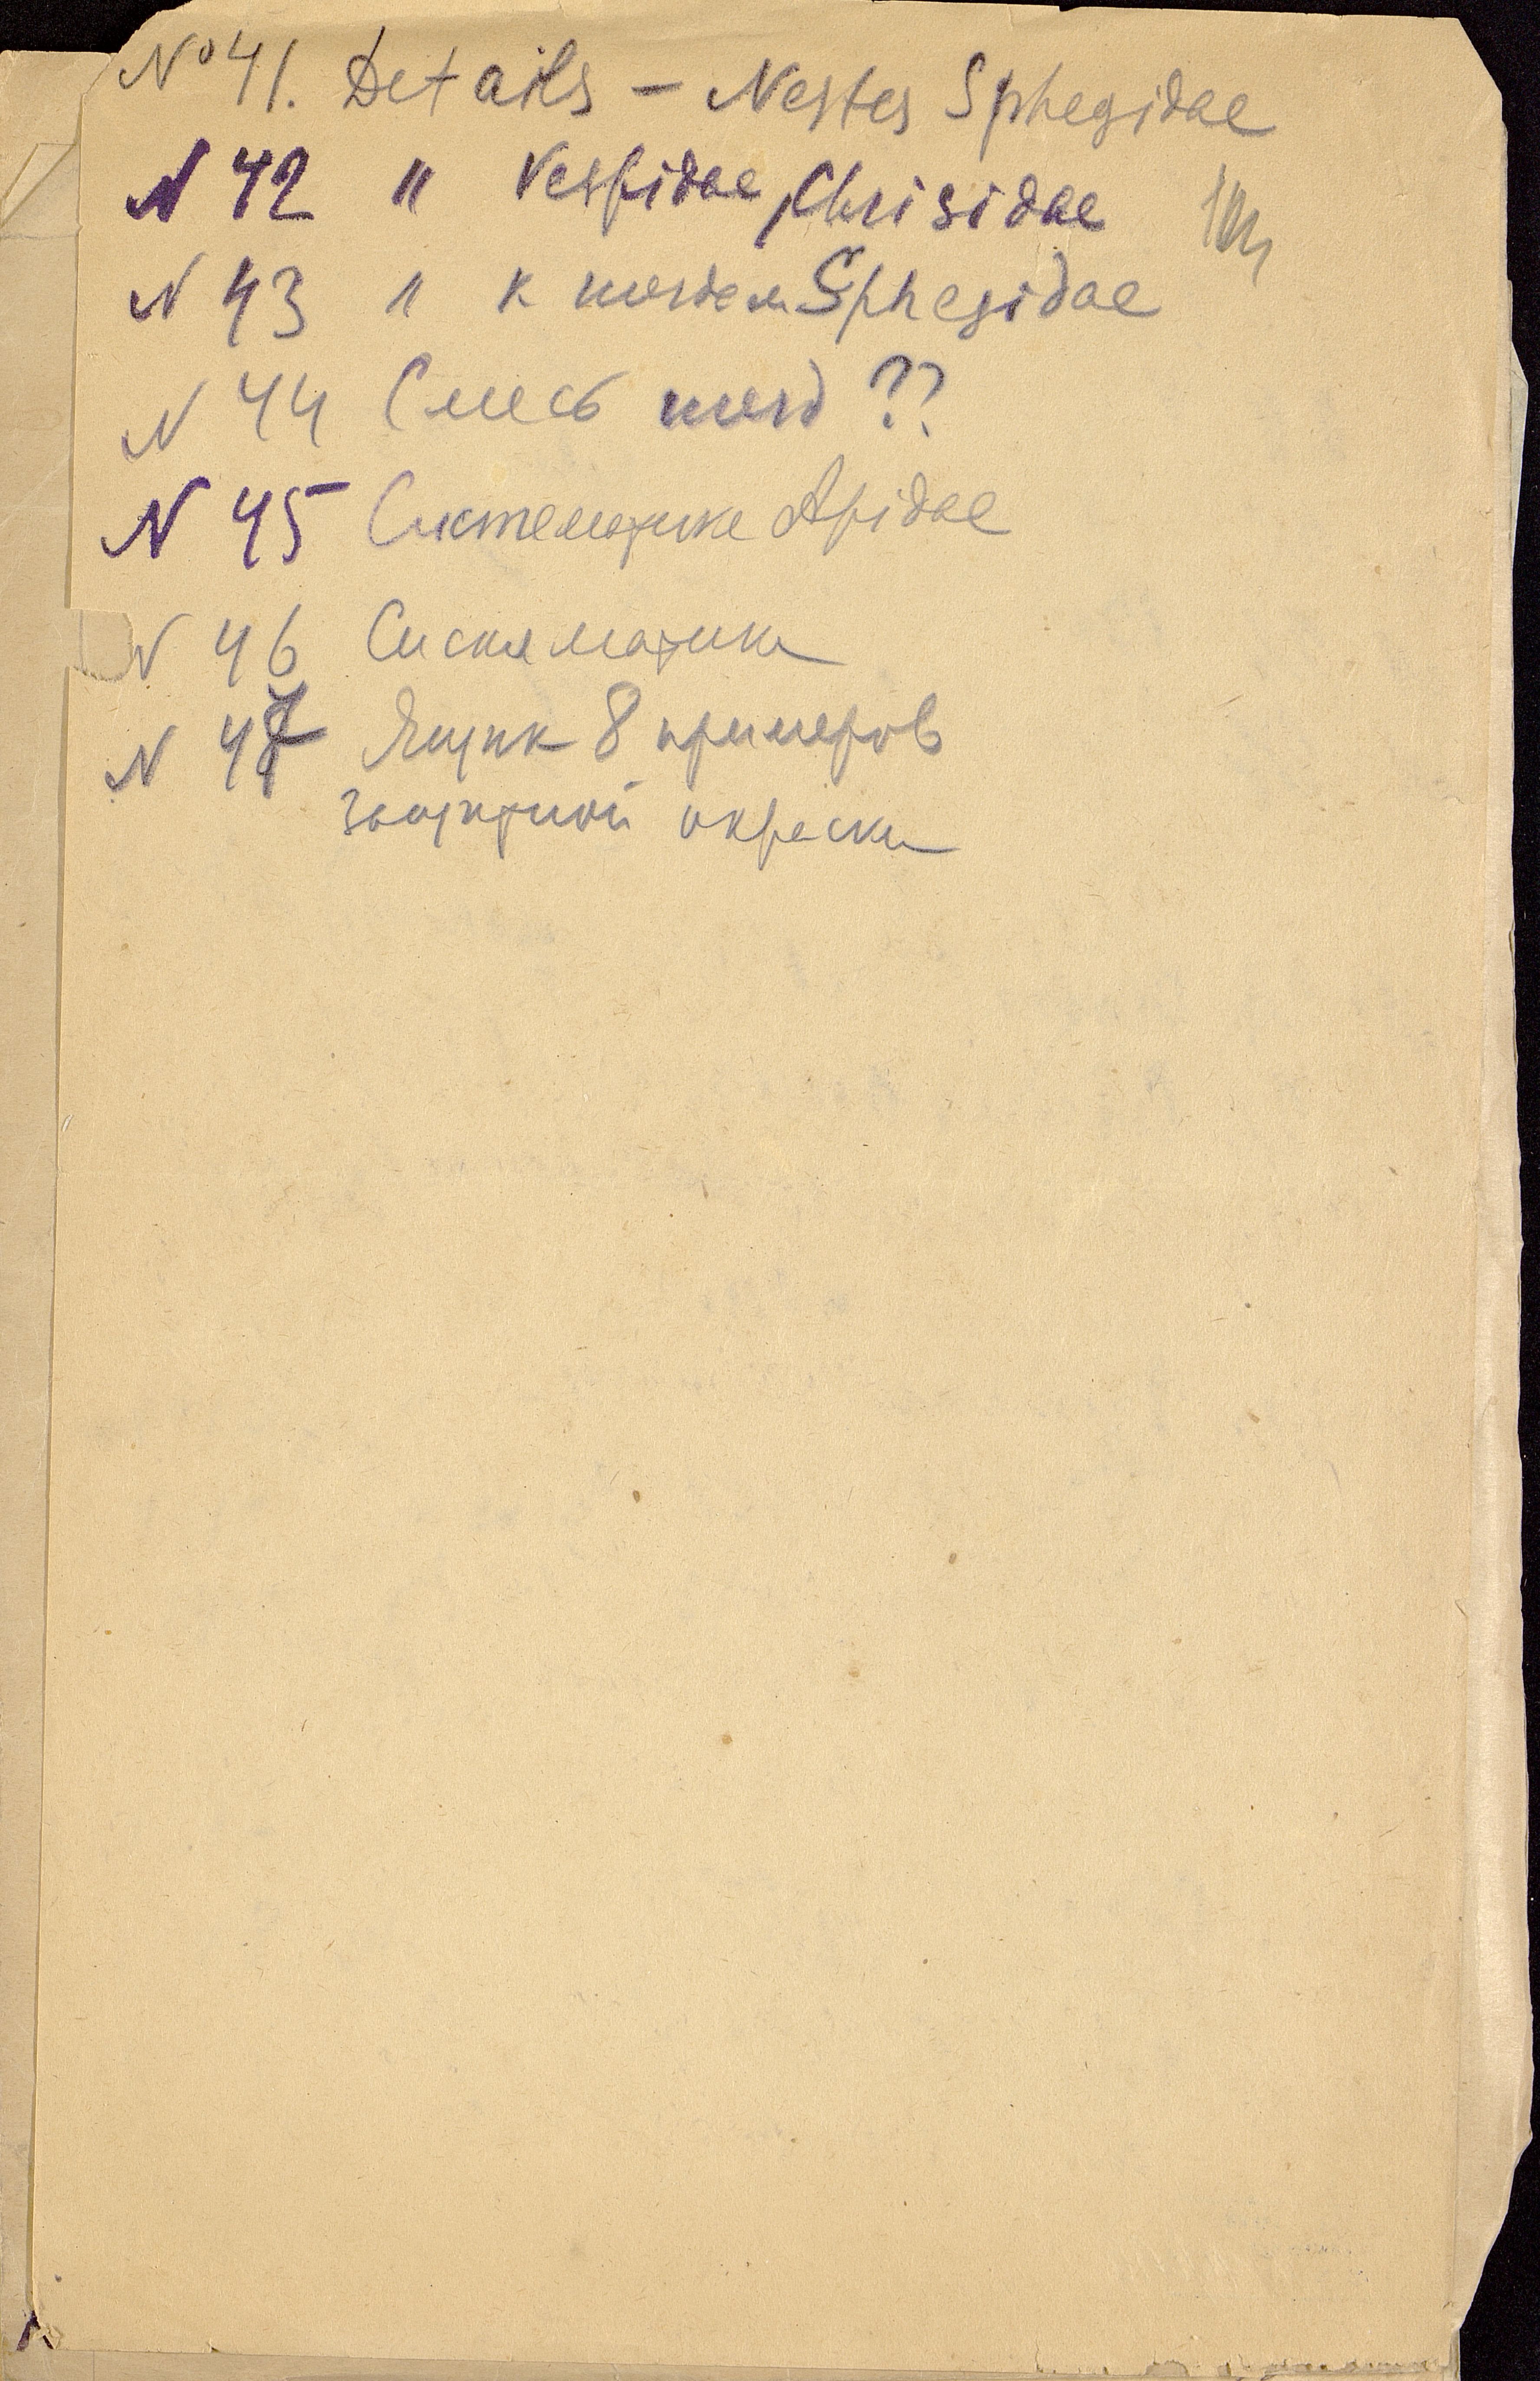 № 41. Details – Nestes Sphegidae
N 42 " Vespidae, Chrisidae
N 43 " к гнездам Sphegidae
N 44 Смесь гнезд ??
N 45 Систематика Apidae
N 46 Систематика
N 47 Ящик 8 примеров
защитной окраски